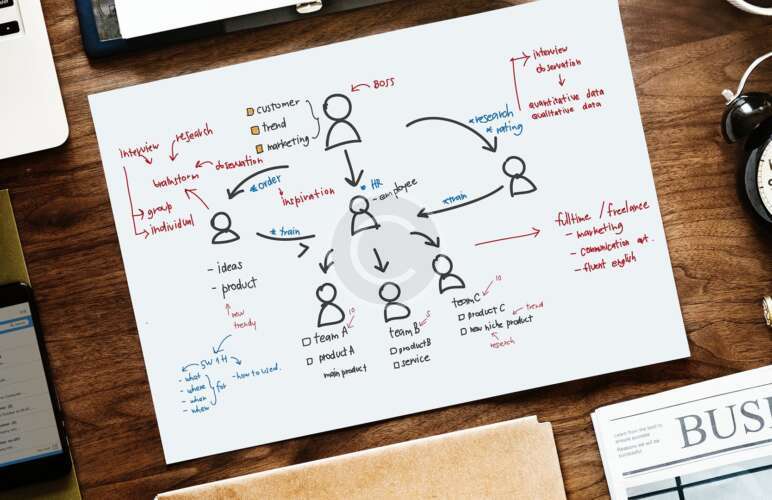 BOSS
customer
trend
marketing
interview
observation
quantitative data
qualitative data
* research
* rating
interview
research
brainstorm
observation
group
individual
* order
inspiration
* HR
- employee
* train
* train
- ideas
- product
new
trendy
fulltime / freelance
- marketing
- communication art.
- fluent english
team A
10
product A
main product
team B
5
product B
service
team C
10
product C
trend
new niche product
research
5W1H
- what
- where
- when
for
- how to used.
BUSI
Learn from the best to